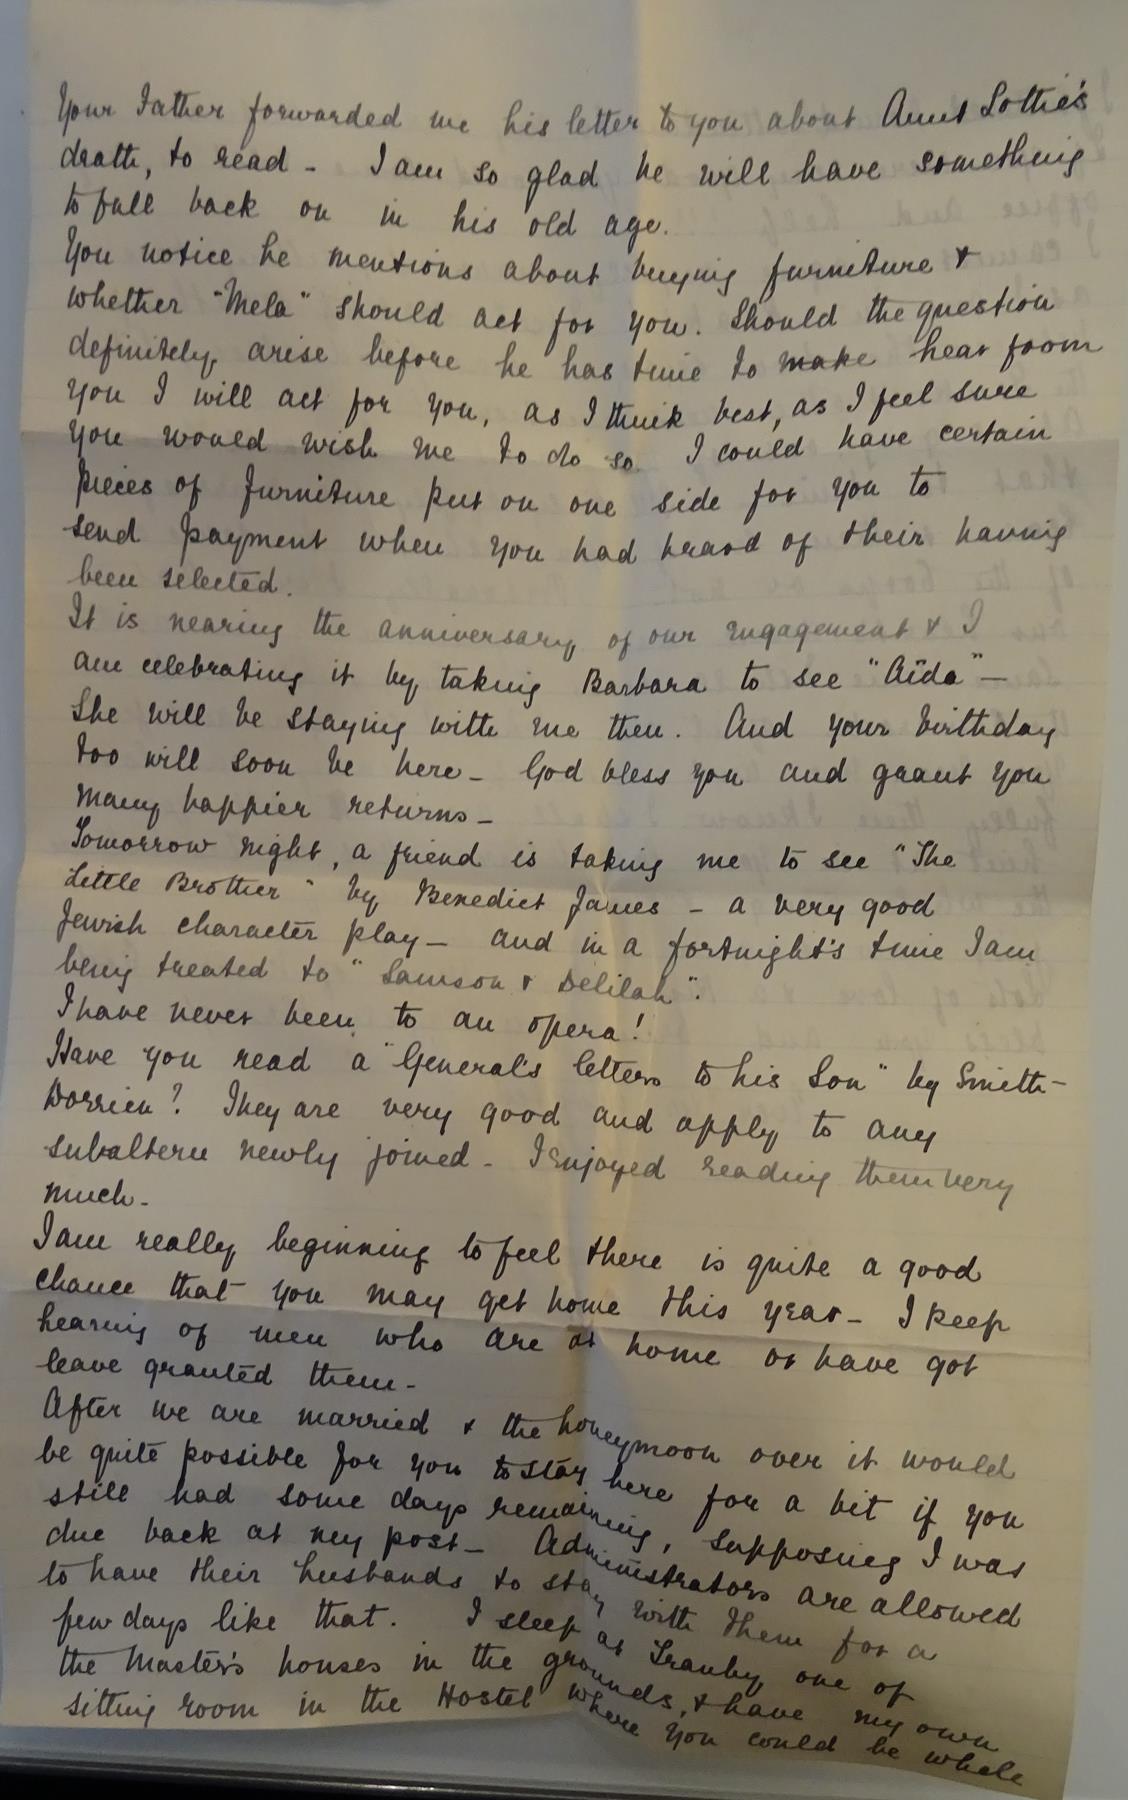 Your Father forwarded me his letter to you about Aunt Lottie's
death, to read - I am so glad he will have something
to fall back on in his old age.
You notice he mentions about buying furniture &
whether "Mela" should act for you. Should the question
definitely arise before he has time to make hear from
you I will act for you, as I think best, as I feel sure
you would wish me to do so. I could have certain
pieces of furniture put on one side for you to
send payment when you had heard of their having
been selected.
It is nearing the anniversary of our engagement & I
am celebrating it by taking Barbara to see "Aïda" -
She will be staying with me then. And your birthday
too will soon be here - God bless you and grant you
many happier returns -
Tomorrow night, a friend is taking me to see "The
Little Brother" by Benedict James - a very good
Jewish character play - and in a fortnight's time I am
being treated to "Samson & Delilah".
I have never been to an opera!
Have you read a "General's letters to his Son" by Smith-
Dorrien? They are very good and apply to any
subaltern newly joined - I enjoyed reading them very
much -
I am really beginning to feel there is quite a good
chance that you may get home this year - I keep
hearing of men who are at home or have got
leave granted them -
After we are married & the honeymoon over it would
be quite possible for you to stay here for a bit if you
still had some days remaining, supposing I was
due back at my post - Administrators are allowed
to have their husbands to stay with them for a
few days like that. I sleep at Tranby one of
the Master's houses in the grounds, & have my own
sitting room in the Hostel where you could be while